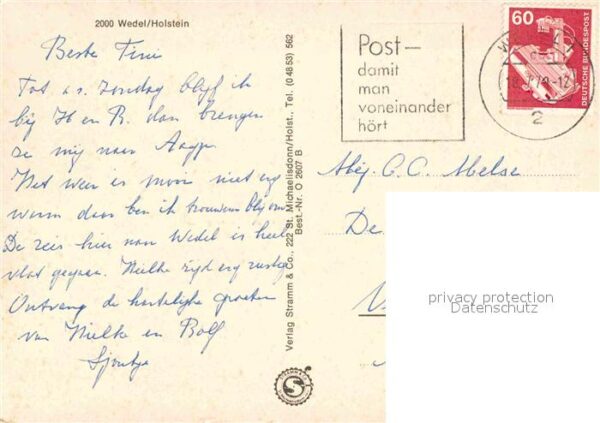 2000 Wedel/Holstein
Beste Fini
Tot a.s. Zondag blijf ik
bij H en R. dan brengen
ze mij naar Aagje.
Het weer is mooi niet erg
warm daar ben ik trouwens blij om
De reis hier naar Wedel is heel
vlot gegaan. Mielke rijd erg rustig
Ontvang de hartelijke groeten
van Mielke en Rolf
Sjoutje
Verlag Stramm & Co., 222 St. Michaelisdonn/Holst., Tel. (0 48 53) 562
Best.-Nr. O 2607 B
Post —
damit
man
voneinander
hört
60
DEUTSCHE BUNDESPOST
2
Mej. C. C. Melse
De
privacy protection
Datenschutz